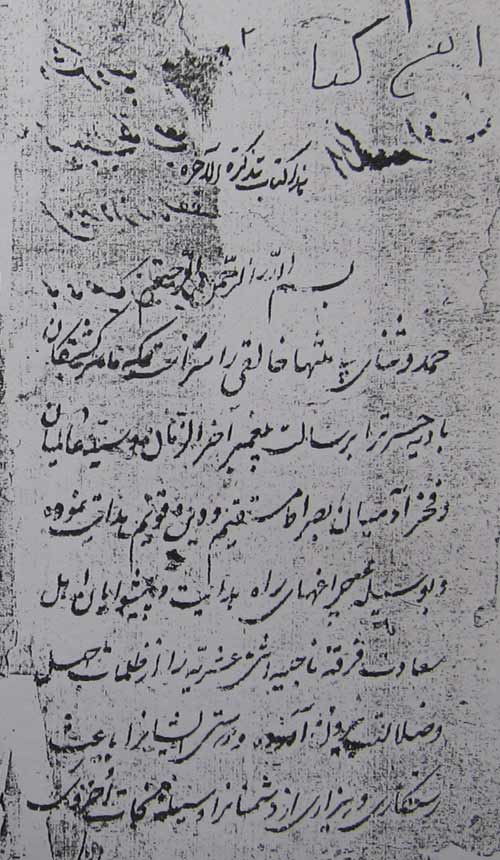 این کتا
هذا کتاب تذکرة الآخره
بسم الله الرحمن الرحیم
حمد و ثنای بی منتها خالقی را سزاست که ما سرکشتکان
بادیه حیرترا برسالت پیغمبر آخر الزمان و سید عالمیان
و فخر آدمیان بصراط مستقیم و دین قویم هدایت نموده
و بوسیله چراغهای راه هدایت و پیشوایان اهل
سعادت فرقه ناجیه اثنی عشریه را از ظلمات جهل
و ضلالت بیرون آورده و دوستی ایشانرا باعث
رستکاری و بیزاری از دشمنانرا وسیله نجات اخروی